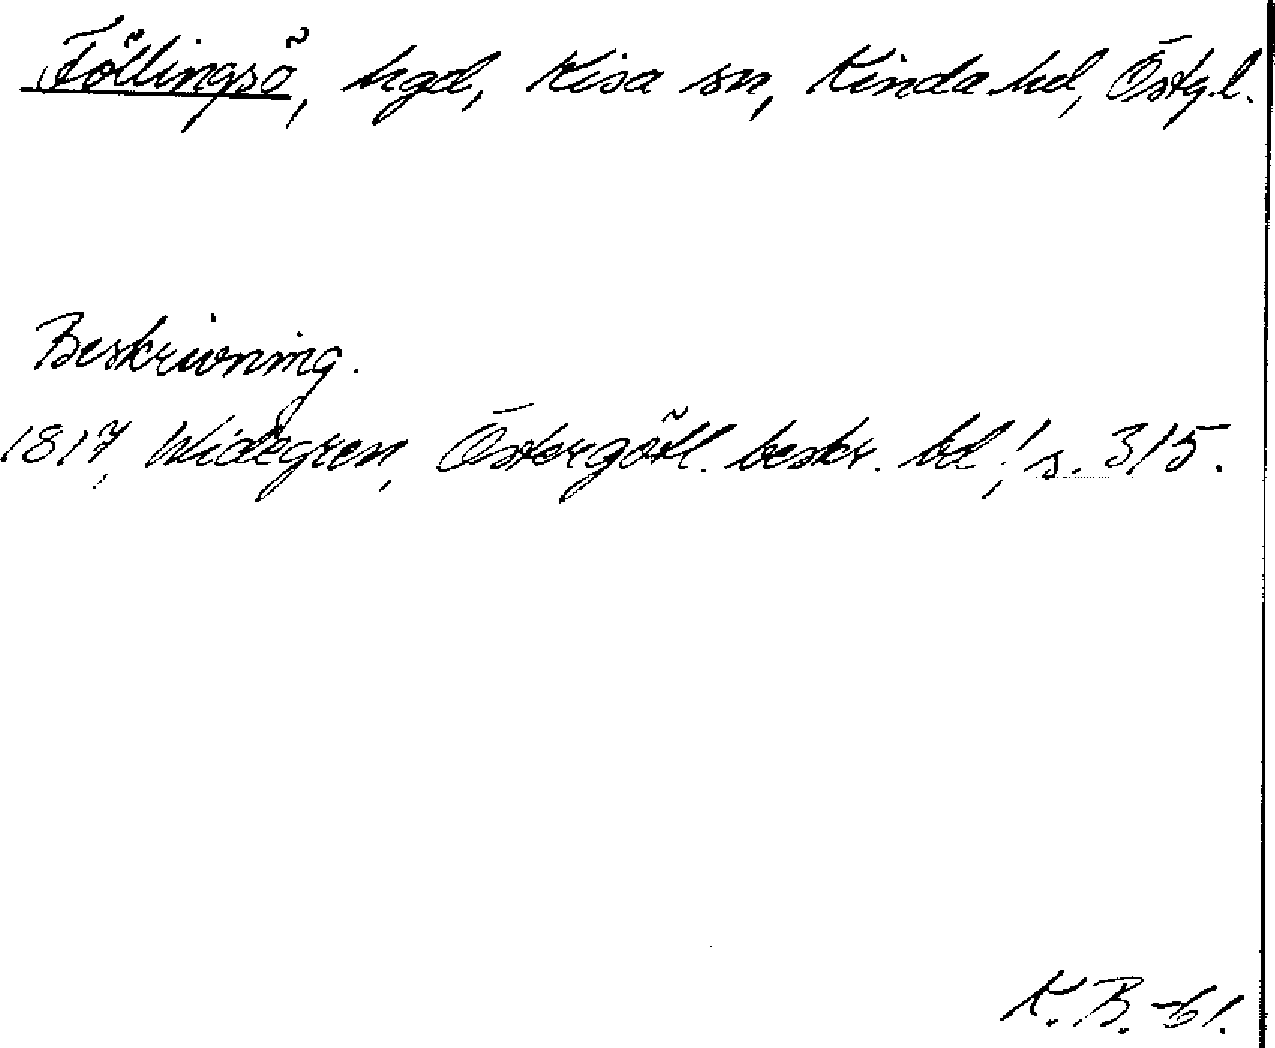 Föllingsö, hgd, Kisa sn, Kinda hd, Östg.l.
Beskrivning.
1817, Widegren, Östergötl. beskr. bd 1, s. 315.
K. B. -61.